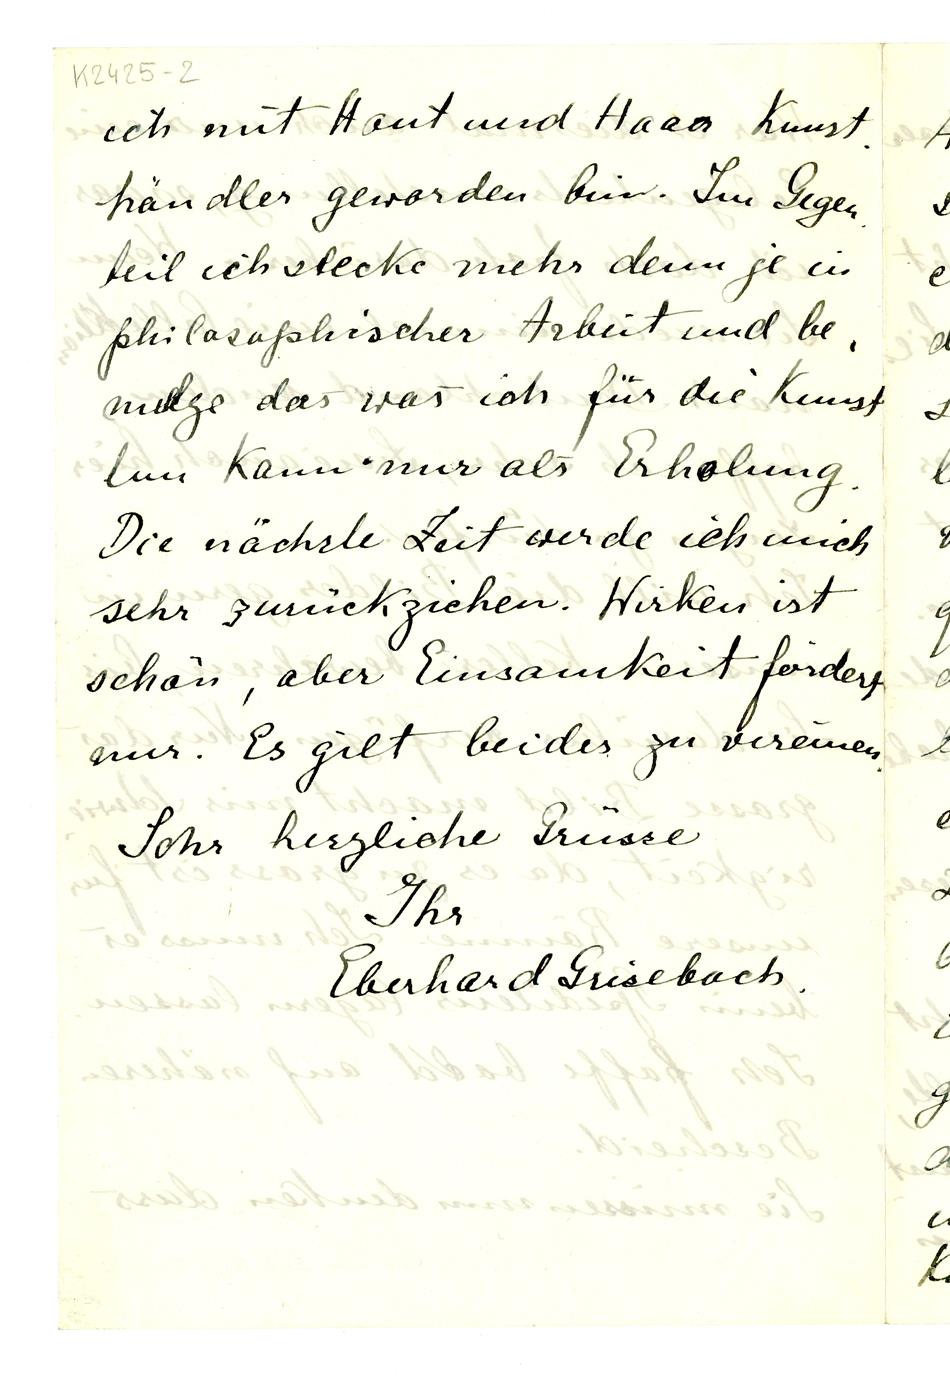 K2425-2
ich mit Haut und Haar Kunst.
händler geworden bin. Im Gegen.
teil ich stecke mehr denn je in
philosophischer Arbeit und be,
nutze das was ich für die Kunst
tun kann nur als Erholung.
Die nächste Zeit werde ich mich
sehr zurückziehen. Wirken ist
schön, aber Einsamkeit fördert
nur. Es gilt beides zu vereinen.
Sehr herzliche Grüsse
Ihr
Eberhard Grisebach.